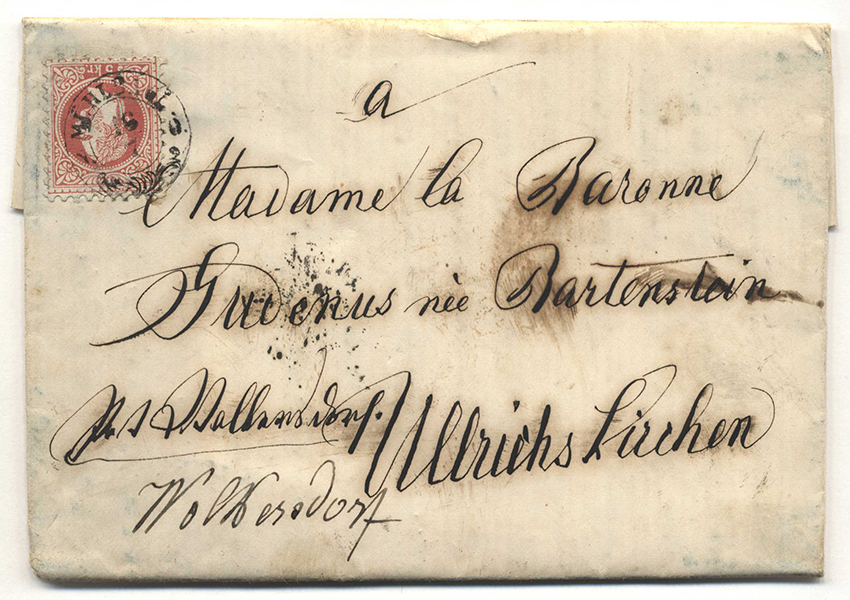 5 kr.
16
a
Madame la Baronne
Gudenus née Bartenstein
Pst Wolkersdorf. Ullrichskirchen
Wolkersdorf